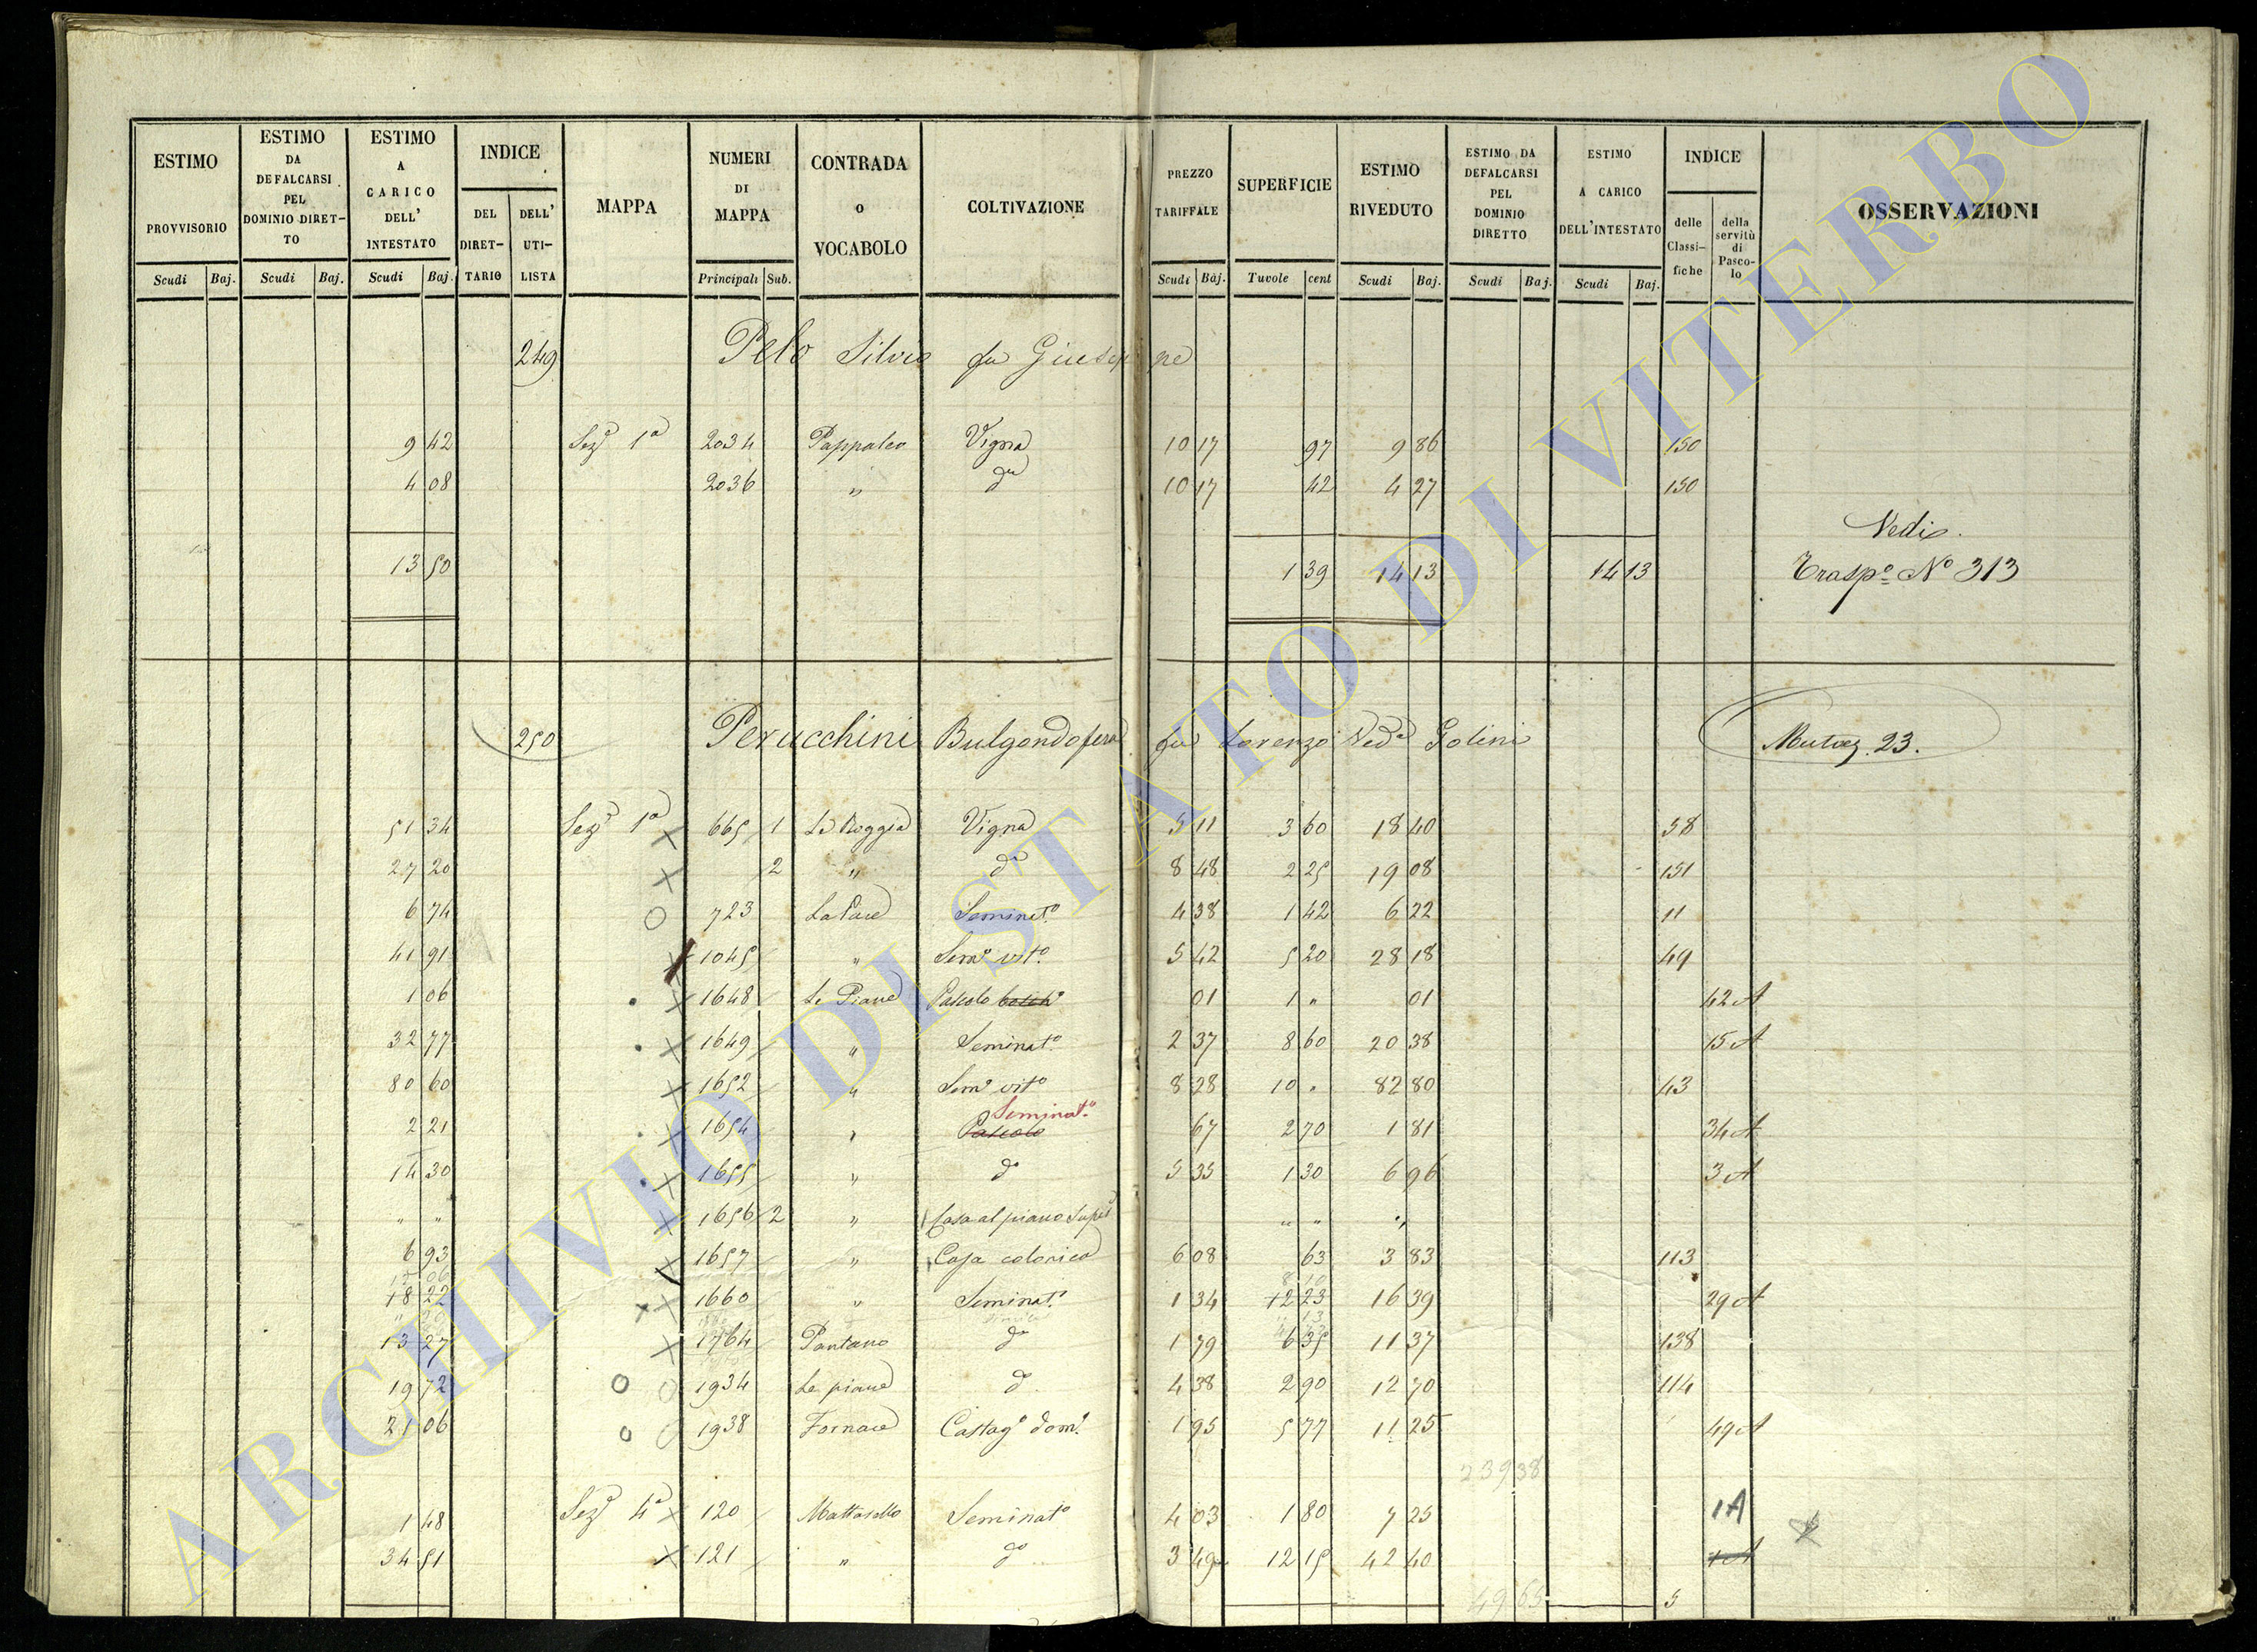 ESTIMO PROVVISORIO Scudi Baj.
ESTIMO DA DEFALCARSI PEL DOMINIO DIRET-TO Scudi Baj.
ESTIMO A CARICO DELL' INTESTATO Scudi Baj.
INDICE DEL DIRET-TARIO DELL' UTI-LISTA
MAPPA
NUMERI DI MAPPA Principali Sub.
CONTRADA o VOCABOLO
COLTIVAZIONE
PREZZO TARIFFALE Scudi Baj.
SUPERFICIE Tuvole cent
ESTIMO RIVEDUTO Scudi Baj.
ESTIMO DA DEFALCARSI PEL DOMINIO DIRETTO Scudi Baj.
ESTIMO A CARICO DELL'INTESTATO Scudi Baj.
INDICE delle Classi-fiche della servitù di Pasco-lo
OSSERVAZIONI
249 Pelo Silvio fu Giuseppe
9 42 Sezᵉ 1ª 2034 Pappaleo Vigna 10 17 97 9 86 150
4 08 2036 " dᵃ 10 17 42 4 27 150
Vedi
13 50 1 39 14 13 14 13 Traspº Nº 313
250 Perucchini Bulgondofera fu Lorenzo Vedª Golini Mutaz. 23.
51 34 Sezᵉ 1ª 665 1 La Roggia Vigna 5 11 3 60 18 40 58
27 20 2 " dᵃ 8 48 2 25 19 08 151
6 74 723 La Pace Seminatº 4 38 1 42 6 22 11
41 91 1045 " Semº vitº 5 42 5 20 28 18 49
1 06 1648 Le Piane Pascolo 01 1 " 01 42 A
32 77 1649 " Seminatº 2 37 8 60 20 38 15 A
80 60 1652 " Semº vitº 8 28 10 " 82 80 43
Seminatº
2 21 1654 " Pascolo 67 2 70 1 81 34 A
14 30 1655 " dº 5 35 1 30 6 96 3 A
" " 1656 2 " Casa al piano Supᵉ " " "
6 93 1657 " Casa colonica 6 08 63 3 83 113
18 22 1660 " Seminatº 1 34 12 23 16 39 29 A
13 27 1764 Pantano dº 1 79 6 35 11 37 138
19 72 1934 Le piane dº 4 38 2 90 12 70 114
21 06 1938 Fornace Castagº domº 1 95 5 77 11 25 49 A
239 38
1 48 Sezᵉ 4ª 120 Mattonello Seminatº 4 03 1 80 7 25 1A
34 51 121 " dº 3 49 12 15 42 40 1 A
49 65 5
ARCHIVIO DI STATO DI VITERBO